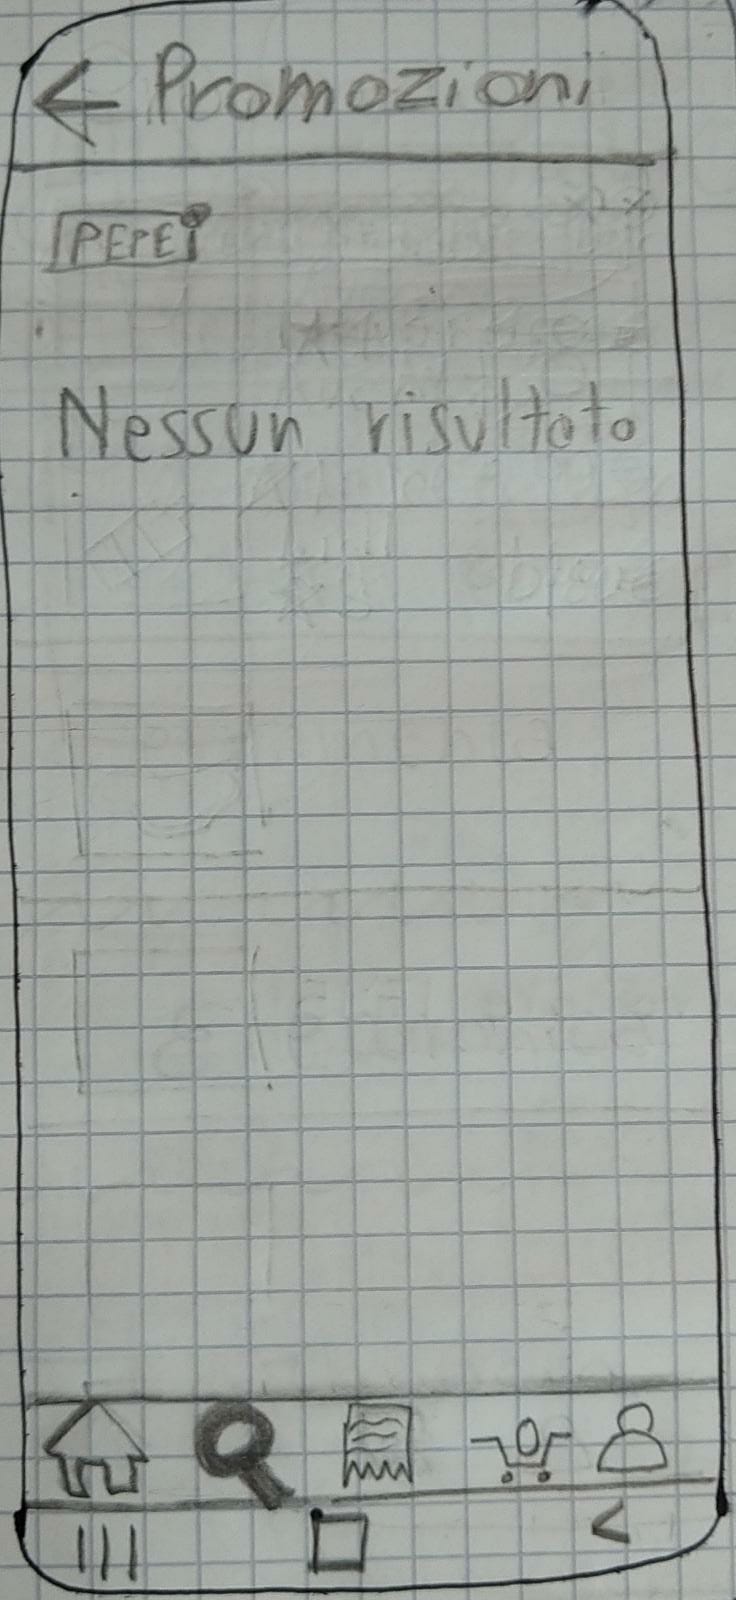 Promozioni
PEPE
Nessun risultato